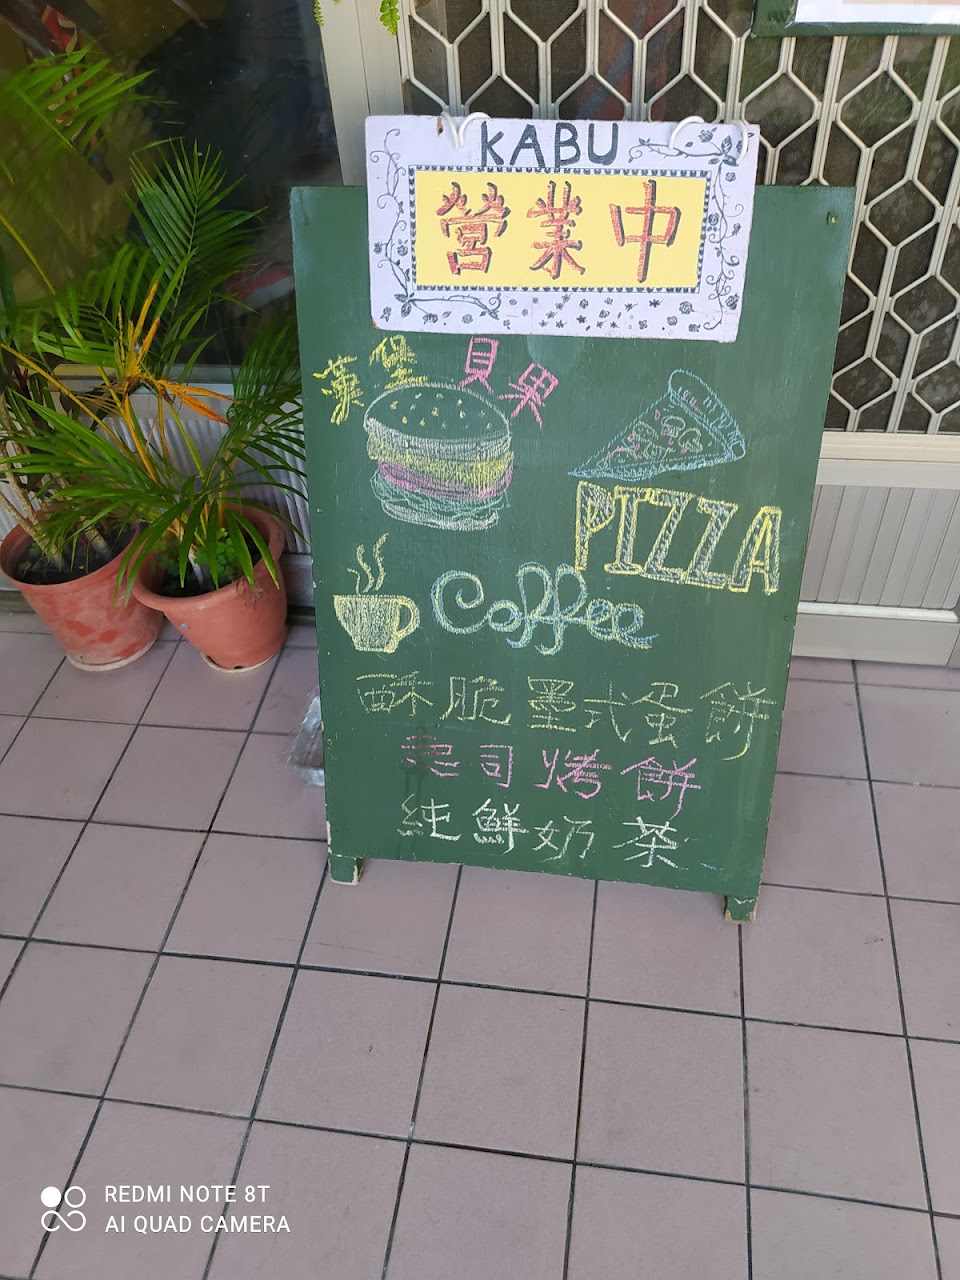 KABU
營業中
漢堡 貝果
PIZZA
Coffee
酥脆墨式蛋餅
起司烤餅
純鮮奶茶
REDMI NOTE 8T
AI QUAD CAMERA